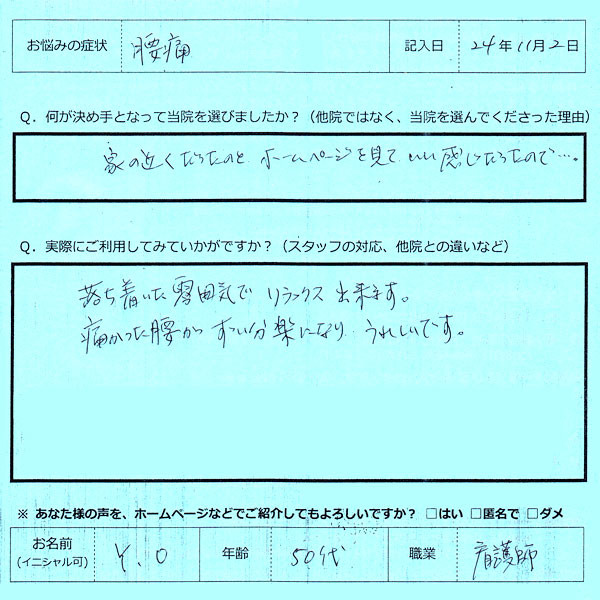 お悩みの症状 腰痛 記入日 24年11月2日
Q．何が決め手となって当院を選びましたか？（他院ではなく、当院を選んでくださった理由）
家の近くだったのと ホームページを見て、いい感じだったので…。
Q．実際にご利用してみていかがですか？（スタッフの対応、他院との違いなど）
落ち着いた雰囲気で リラックス出来ます。
痛かった腰がずい分楽になり、うれしいです。
※ あなた様の声を、ホームページなどでご紹介してもよろしいですか？ □はい □匿名で □ダメ
お名前 (イニシャル可) Y.O 年齢 50代 職業 看護師